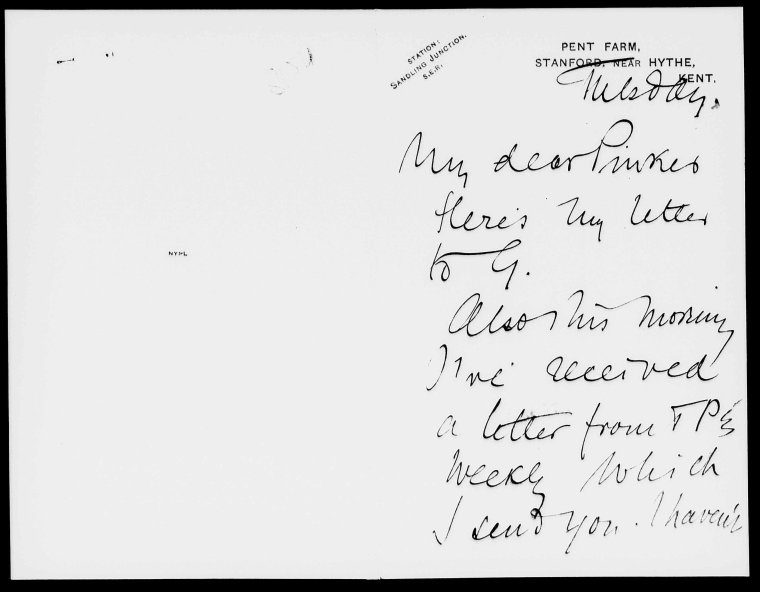 STATION:
SANDLING JUNCTION.
S.E.R.
PENT FARM,
STANFORD, NEAR HYTHE,
KENT.
Tuesday.
My dear Pinker
Here's my letter
to G.
Also this morning
I've received
a letter from T P's
Weekly which
I send you. I haven't
NYPL